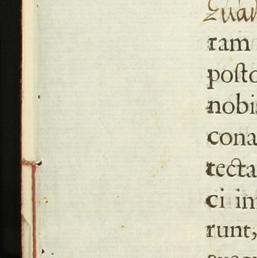 ram
posto
nobis
cona
recta
ci in
runt,